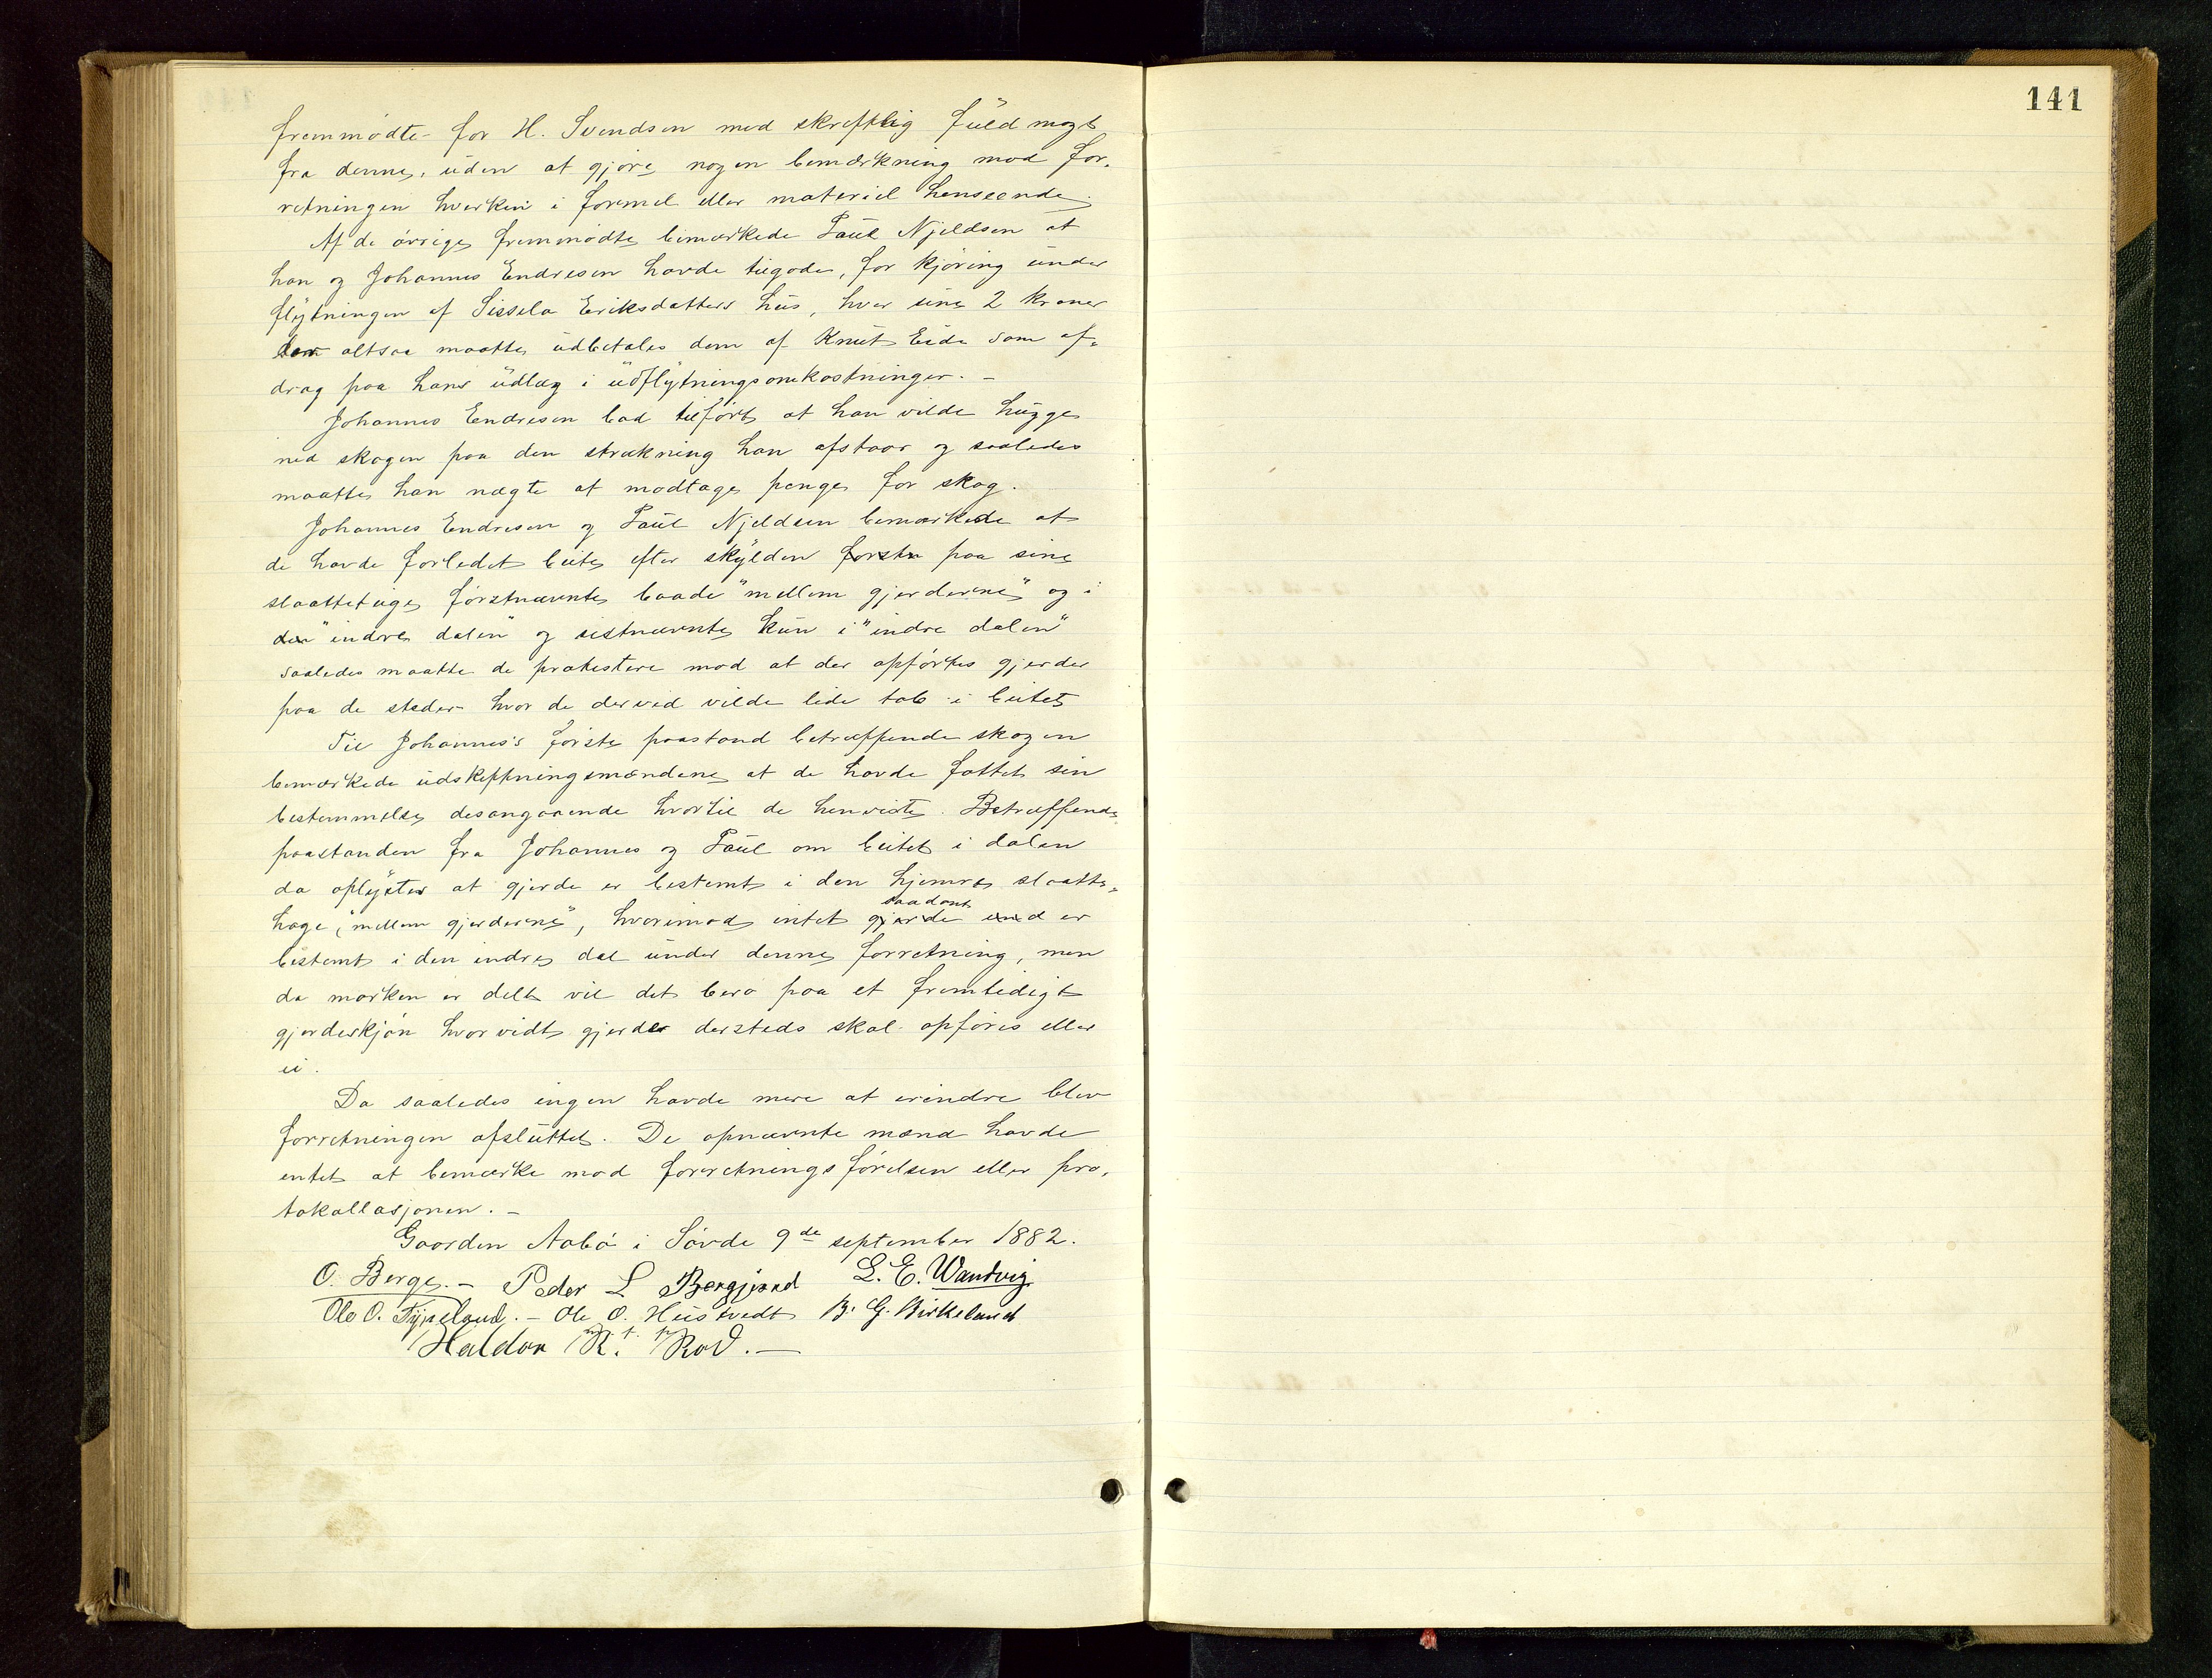 141
fremmødte for H. Svendsen med skriftlig fuldmagt
fra denne, uden at gjøre nogen bemærkning mod for-
retningen hverken i formel eller materiel henseende.
Af de øvrige fremmødte bemærkede Paul Njeldsen at
han og Johannes Endresen havde tilgode, for kjøring under
flytningen af Sissela Eriksdatters hus, hver sine 2 kroner
som altsaa maatte udbetales dem af Knut Eide som af-
drag paa hans udlæg i udflytningsomkostninger. –
Johannes Endresen bad tilført at han vilde hugge
ned skogen paa den strækning han afstaar og saaledes
maatte han nægte at modtage penge for skog.
Johannes Endresen og Paul Njeldsen bemærkede at
de havde forledet beite efter skylden første paa sine
slaatteteige, førstnævnte baade "mellem gjerderne" og i
den "indre dalen" og sistnævnte kun i "indre dalen"
saaledes maatte de protestere mod at der opførtes gjerder
paa de steder hvor de derved vilde lide tab i beitet
Til Johannes's første paastand betræffende skogen
bemærkede udskiftningsmændene at de havde fattet sin
bestemmelse desangaaende hvortil de henviste. Betræffende
paastanden fra Johannes og Paul om beitet i dalen
da oplystes at gjerde er bestemt i den hjemre slaatte-
hage, "mellem gjerderne", hvorimod intet gjerde saadant er
bestemt i den indre dal under denne forretning, men
da marken er delt vil det bero paa et fremtidigt
gjerdeskjøn hvorvidt gjerder dersteds skal opføres eller
ei.
Da saaledes ingen havde mere at erindre blev
forretningen afsluttet. De opnævnte mænd havde
intet at bemærke mod forretningsførelsen eller pro-
tokollasjonen. –
Gaarden Aabø i Søvde 9de september 1882.
O. Berge. – Peder L Bergjord L. E. Wandvig
Ole O. Tyseland. – Ole O. Hustvedt B. G. Birkeland
Haldor R. Rød. –
m. f. p.